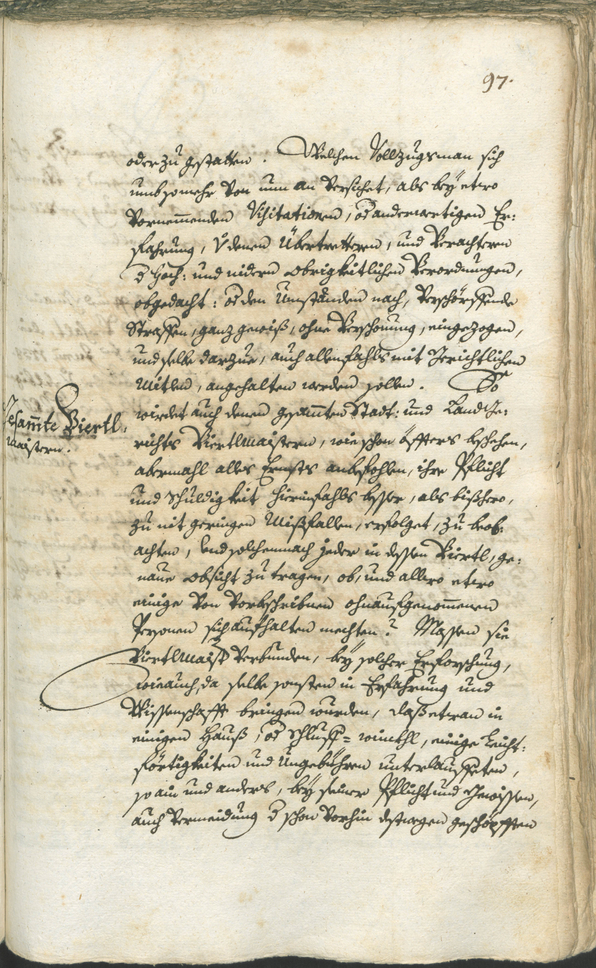 97.
oder zu gestatten. Welchen Vollzugs man sich
umb so mehr von nun an versichet, als bey etwo
vornemmenden Visitationen, od anderwertigen Er:
fahrung, denen Übertrettern, und Verachtern
d Hoch: und nidern Obrigkeitlichen Verordnungen,
obgedacht: od den Umständen nach, verschörffende
Straffen, ganz gewiß, ohne Verschonung, eingezogen,
und selbe darzue, auch allenfahls mit Gerichtlichen
Mitlen, angehalten werden sollen. So
wirdet auch denen gesamten Stadt: und Landge:
richts Viertlmaistern, wie schon öffters beschehen,
abermahl alles Ernsts anbefohlen, ihre Pflicht
und Schuldigkeit hierinfahls besser, als bishero,
zu nit geringen Mißfallen, erfolget, zu beob:
achten, und solchemnach jeder in dessen Viertl, ge:
naue Obsicht zu tragen, ob, und allwo etwo
einige von vorbschribnen ohnaufgenommenen
Personen sich aufhalten mechten? Massen sie
Gesamte Viertl:
maistern.
Viertlmaist verbunden, bey solcher Erforschung,
wie auch, da selbe sonsten in Erfahrung und
Wissenschafft bringen wurden, daß etwan in
einigen Hauß, od Schlupf=winckhl, einige Leicht:
förtigkeiten und Ungebühren unterlauffeten,
so ain und anders, bey seiner Pflicht und Gewissen,
auch Vermeidung d schon vorhin destwegen geschöpfften